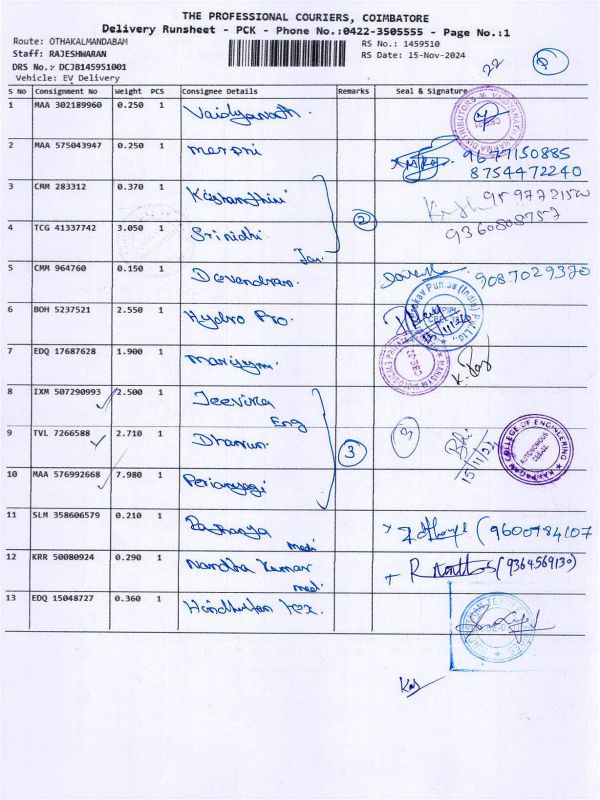 THE PROFESSIONAL COURIERS, COIMBATORE
Delivery Runsheet - PCK - Phone No.:0422-3505555 - Page No.:1
Route: OTHAKALMANDABAM
RS No.: 1459510
Staff: RAJESHWARAN
RS Date: 15-Nov-2024
DRS No.: DCJB145951001
Vehicle: EV Delivery
S No Consignment No Weight PCS Consignee Details Remarks Seal & Signature
1 MAA 302189960 0.250 1 Vaidyanath.
2 MAA 575043947 0.250 1 9677150885
8754472240
3 CMM 283312 0.370 1
4 TCG 41337742 3.050 1 Srinidhi 2 9360808757
5 CMM 964760 0.150 1 Devendran. 9087029370
6 BOH 5237521 2.550 1 Hydro Pro.
7 EDQ 17687628 1.900 1
8 IXM 507290993 2.500 1 Jeevika
Eng
9 TVL 7266588 2.710 1 Dharun. 3 15/11/24
COLLEGE OF ENGINEERING
AUTONOMOUS
10 MAA 576992668 7.980 1
11 SLM 358606579 0.210 1 medi (9600784107
12 KRR 50080924 0.290 1 Nandha Kumar
medi (9364569130)
13 EDQ 15048727 0.360 1 Hindhustan Tex.